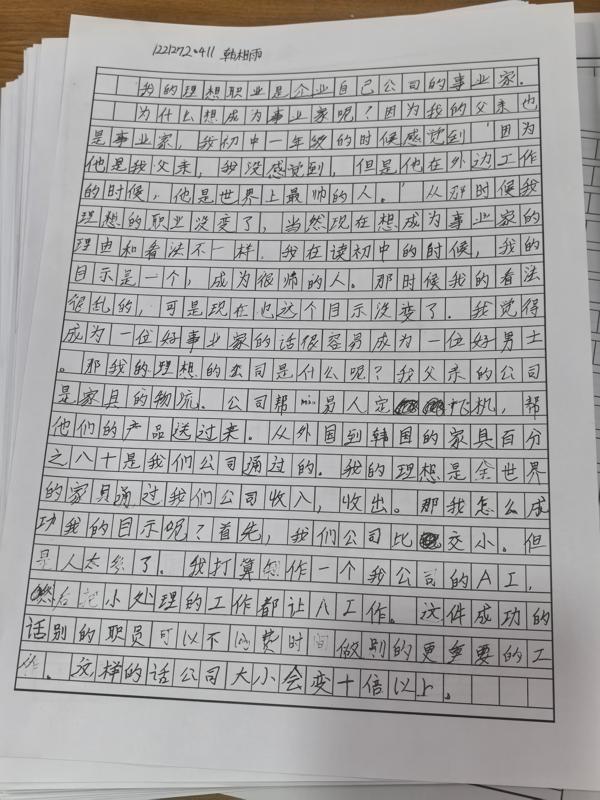 12212720411 韩相雨
我的理想职业是企业自己公司的事业家.
为什么想成为事业家呢?因为我的父亲也
是事业家,我初中一年级的时候感觉到'因为
他是我父亲,我没感觉到,但是他在外边工作
的时候,他是世界上最帅的人.'从那时候我
理想的职业没变了,当然现在想成为事业家的
理由和看法不一样.我在读初中的时候,我的
目示是一个,成为很帅的人。那时候我的看法
很乱的,可是现在也这个目示没变了.我觉得
成为一位好事业家的话很容易成为一位好男士
。那我的理想的公司是什么呢?我父亲的公司
是家具的物流.公司帮易人定飞机,帮
他们的产品送过来.从外国到韩国的家具百分
之八十是我们公司通过的.我的理想是全世界
的家具通过我们公司收入,收出。那我怎么成
功我的目示呢?首先,我们公司比交小。但
是人太多了。我打算作一个我公司的AI,
然后把小处理的工作都让八工作。这件成功的
话别的职员可以不浪费时间做别的更重要的工
作.这样的话公司大小会变十倍以上.